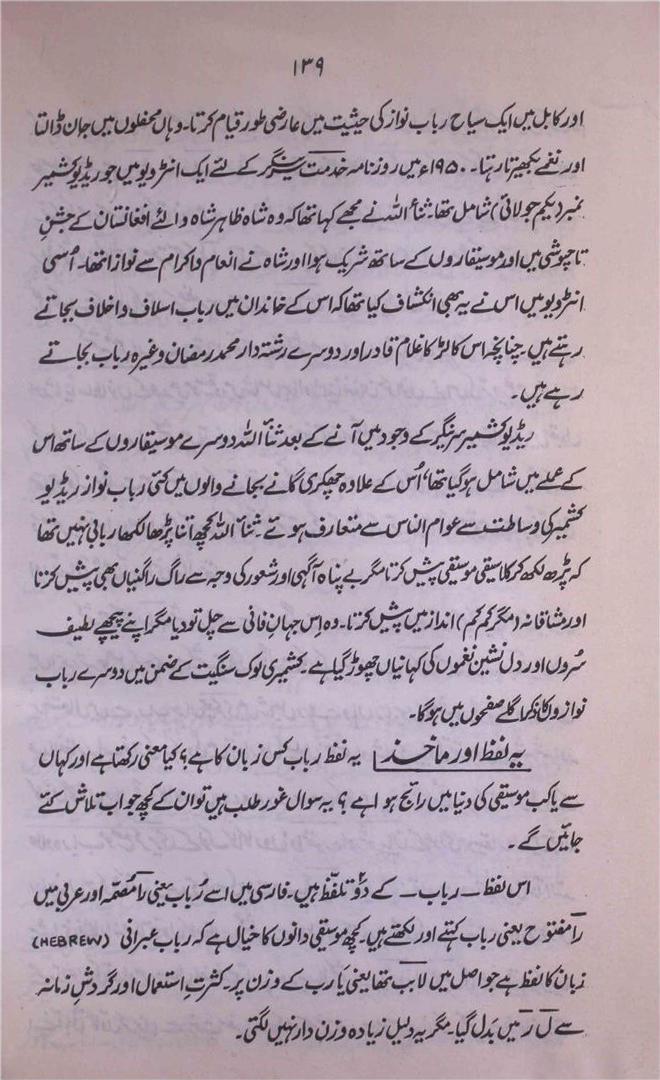 ۱۳۹
اور کابل میں ایک سیاح رباب نواز کی حیثیت میں عارضی طور قیام کرتا۔ وہاں محفلوں میں جان ڈالتا
اور نغمے بکھیرتا رہتا۔ ۱۹۵۰ء میں روزنامہ خدمت سرینگر کے لئے ایک انٹرویو میں جو ریڈیو کشمیر
نمبر (یکم جولائی) شامل تھا۔ ثنأ اللہ نے مجھے کہا تھا کہ وہ شاہ ظاہر شاہ والئے افغانستان کے جشنِ
تاجپوشی میں اور موسیقاروں کے ساتھ شریک ہوا اور شاہ نے انعام و اکرام سے نوازا تھا۔ اُسی
انٹرویو میں اس نے یہ بھی انکشاف کیا تھا کہ اس کے خاندان میں رباب اسلاف و اخلاف بجاتے
رہتے ہیں۔ چنانچہ اس کا لڑکا غلام قادر اور دوسرے رشتہ دار محمد رمضان وغیرہ رباب بجاتے
رہے ہیں۔
ریڈیو کشمیر سرینگر کے وجود میں آنے کے بعد ثنأ اللہ دوسرے موسیقاروں کے ساتھ اس
کے عملے میں شامل ہو گیا تھا، اُس کے علاوہ چھکری گانے بجانے والوں میں کئی رباب نواز ریڈیو
کشمیر کی وساطت سے عوام الناس سے متعارف ہوئے۔ ثنأ اللہ کچھ اتنا پڑھا لکھا ربابی نہیں تھا
کہ پڑھ لکھ کر کلاسیقی موسیقی پیش کرتا مگر بے پناہ آگہی اور شعور کی وجہ سے راگ راگنیاں بھی پیش کرتا
اور مشاقانہ (مگر کم کم) انداز میں پیش کرتا۔ وہ اِس جہانِ فانی سے چل تو دیا مگر اپنے پیچھے لطیف
سُروں اور دل نشین نغموں کی کہانیاں چھوڑ گیا ہے۔ کشمیری لوک سنگیت کے ضمن میں دوسرے رباب
نوازوں کا ذکر اگلے صفحوں میں ہوگا۔
یہ لفظ اور ماخذ یہ لفظ رباب کس زبان کا ہے؟ کیا معنی رکھتا ہے اور کہاں
سے یا کب موسیقی کی دنیا میں رائج ہوا ہے؟ یہ سوال غور طلب ہیں تو ان کے کچھ جواب تلاش کئے
جائیں گے۔
اس لفظ۔ رباب۔ کے دو تلفّظ ہیں۔ فارسی میں اسے رُباب یعنی را مضمّہ اور عربی میں
را مفتوح یعنی رباب کہتے اور لکھتے ہیں۔ کچھ موسیقی دانوں کا خیال ہے کہ رباب عبرانی (HEBREW)
زبان کا لفظ ہے جو اصل میں لابب تھا یعنی یارب کے وزن پر۔ کثرتِ استعمال اور گردشِ زمانہ
سے ل ر میں بدل گیا۔ مگر یہ دلیل زیادہ وزن دار نہیں لگتی۔